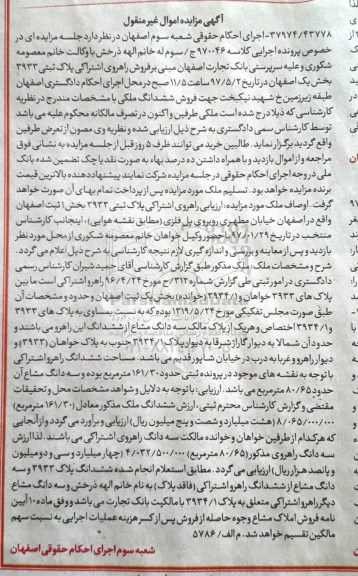 آگهی مزایده اموال غیر منقول
۳۷۹۷۴/۴۳۷۷۸- اجرای احکام حقوقی شعبه سوم اصفهان در نظر دارد جلسه مزایده ای در
خصوص پرونده اجرایی کلاسه ۹۷۰۰۴۶ ج/ سوم له خانم الهه ذرخش با وکالت خانم معصومه
شکوری و علیه سرپرستی بانک تجارت اصفهان مبنی بر فروش راهروی اشتراکی پلاک ثبتی ۳۹۳۳
بخش یک اصفهان در تاریخ ۹۷/۵/۲ ساعت ۱۱/۵ صبح در محل اجرای احکام دادگستری اصفهان
طبقه زیرزمین خ شهید نیکبخت جهت فروش ششدانگ ملکی با مشخصات مندرج در نظریه
کارشناسی که ذیلا درج شده است ملکی طرفین و اکنون در تصرف مالکانه محکوم علیه می باشد
توسط کارشناس رسمی دادگستری به شرح ذیل ارزیابی شده و نظریه وی مصون از تعرض طرفین
واقع گردیده برگزار نماید. طالبین خرید می توانند ظرف ۵ روز قبل از جلسه مزایده به نشانی فوق
مراجعه و از اموال بازدید و با همراه داشتن ده درصد بهاء به صورت نقد یا چک تضمین شده بانک
ملی در وجه اجرای احکام حقوقی در جلسه مزایده شرکت نمایند پیشنهاد دهنده بالاترین قیمت
برنده مزایده خواهد بود. تسلیم ملک مورد مزایده پس از پرداخت تمام بهای آن صورت خواهد
گرفت. اوصاف ملک مورد مزایده: ارزیابی راهروی اشتراکی پلاک ثبتی ۳۹۳۳ بخش ۱ ثبت اصفهان
واقع در اصفهان خیابان مطهری روبروی پل فلزی (مطابق نقشه هوایی)، اینجانب کارشناس
منتخب در تاریخ ۹۷/۰۱/۲۹ با حضور وکیل خواهان خانم معصومه شکوری از محل مورد نظر
بازدید و پس از معاینه و بررسی و اندازه گیری لازم نتیجه کارشناسی به شرح ذیل اعلام می گردد.
شرح و مشخصات ملک: پلاک مذکور طبق گزارش کارشناسی آقای حمید شیران کارشناس رسمی
دادگستری در امور ثبتی طی گزارش شماره ۳۱۲/ح مورخ ۹۶/۴/۲۴ راهرو اشتراکی است ما بین
پلاک های ۳۹۳۳ (خواهان) و ۳۹۳۴/۱ (خوانده) بخش یک ثبت اصفهان و حدود و مشخصات آن
طبق صورت مجلس تفکیکی مورخ ۱۳۱۹/۵/۲۴ بوده که به نسبت بمساوی به پلاک های ۳۹۳۳
و ۳۹۳۴/۱ اختصاص و هریک از پلاک مالک سه دانگ مشاع از ششدانگ این راهرو می باشند و
حدود آن شمالا به دیوار گاراژ شرقا به دیوار پلاک ۳۹۳۴/۱ جنوب به پلاک خواهان (۳۹۳۳) و
دیوار راهرو و غربا به درب در خیابان شاپور قدیم می باشد. مساحت ششدانگ راهرو اشتراکی
با توجه به نقشه های موجود در پرونده ثبتی حدود ۱۶۱/۳۰ مترمربع بوده و سه دانگ مشاع آن
حدود ۸۰/۶۵ مترمربع می باشد. ارزیابی: با توجه به دلایل و شواهد مشخصات محل و تحقیقات
مقتضی و گزارش کارشناس محترم ثبتی، ارزش ششدانگ ملک مذکور معادل (۱۶۱/۳۰ مترمربع)
۸/۰۶۵/۰۰۰/۰۰۰ (هشت میلیارد و شصت و پنج میلیون ریال) ارزیابی و برآورد می گردد و از آنجایی
که هرکدام از طرفین خواهان و خوانده مالکت سه دانگ راهروی اشتراکی می باشند. لذا ارزش
سه دانگ راهروی مذکور (۸۰/۶۵ مترمربع) ۴/۰۳۲/۵۰۰/۰۰۰ (چهار میلیارد و سی و دو میلیون
و پانصد هزار ریال) ارزیابی می گردد. مطابق استعلام انجام شده ششدانگ پلاک ۳۹۳۳ و سه
دانگ مشاع از ششدانگ راهرو اشتراکی (فاقد پلاک) به نام خانم الهه ذرخش و سه دانگ مشاع
دیگر راهرو اشتراکی متعلق به پلاک ۳۹۳۴/۱ با مالکیت بانک تجارت می باشد و وفق ماده ۱۰ آیین
نامه فروش املاک مشاع وجوه حاصله از فروش پس از کسر هزینه عملیات اجرایی به نسبت سهم
مالکین تقسیم خواهد شد. م الف/ ۵۷۸۶
شعبه سوم اجرای احکام حقوقی اصفهان